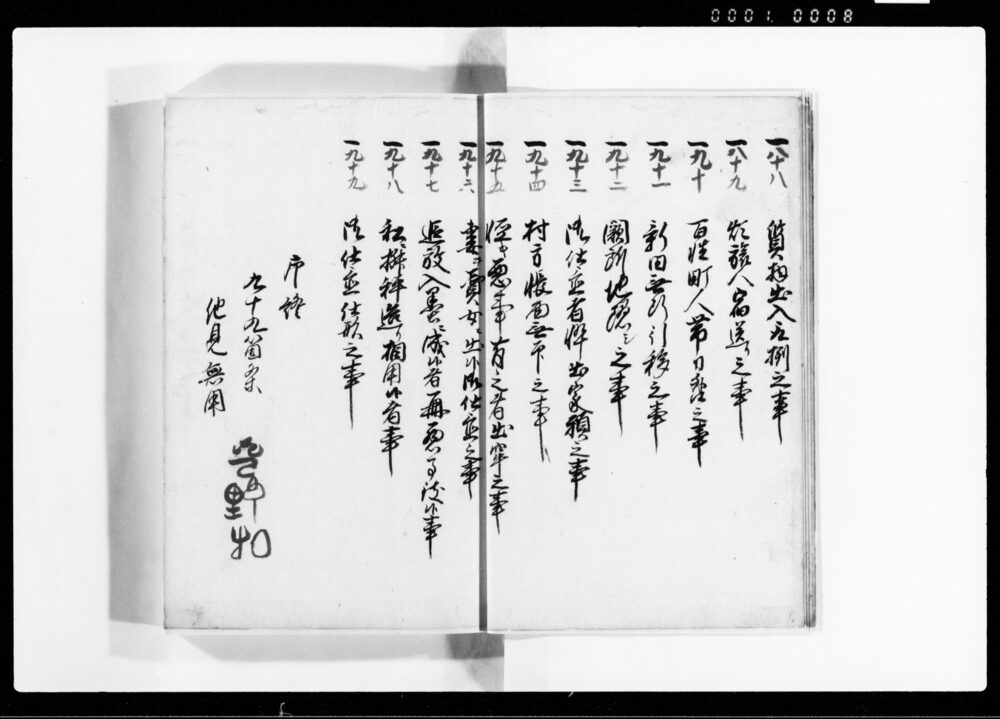 0001 0008
一八十八 質物出入取捌之事
一八十九 煩旅人宿送り之事
一九十 百姓町人帯刀致候之事
一九十一 新田無断引移之事
一九十二 闕所地隠シ之事
一九十三 御仕置者忰出家願之事
一九十四 村方帳面無印之事
一九十五 軽キ悪事有之者出牢之事
一九十六 妻ヲ賣女ニ出候御仕置之事
一九十七 追放入墨ニ成候者再悪事致候事
一九十八 私ニ拵枠送り相用候者事
一九十九 御仕置仕形之事
序終
九十九箇条
他見無用
野